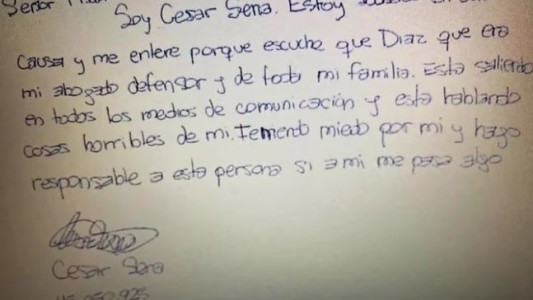 Señor
Soy Cesar Sena. Estoy
causa y me entere porque escuche que Diaz que era
mi abogado defensor y de toda mi familia. Esta saliendo
en todos los medios de comunicación y esta hablando
cosas horribles de mi. Temendo miedo por mi y hago
responsable a esta persona si a mi me pasa algo
Cesar Sena